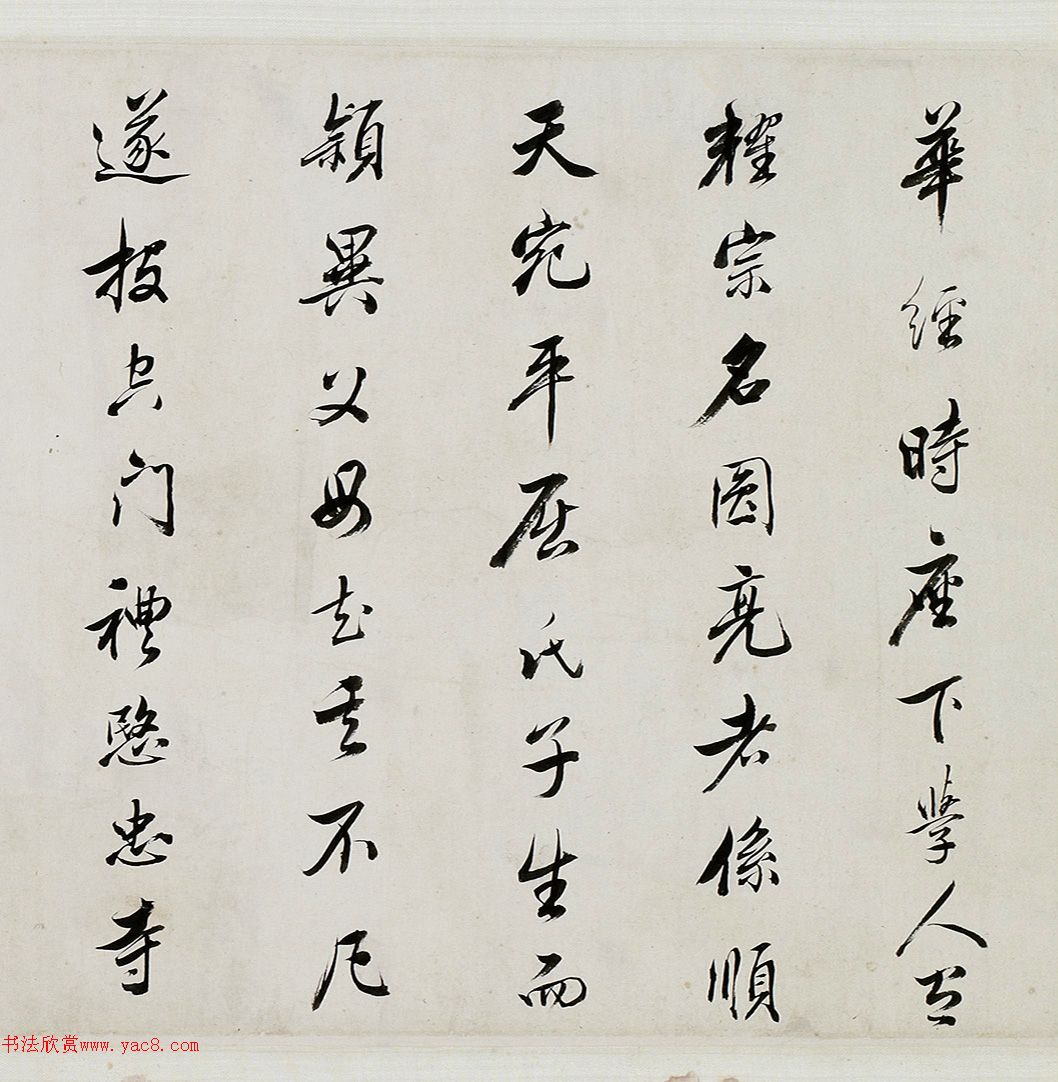 華經時座下學人
耀宗名圓亮者係順
天宛平居氏子生而
穎異父母知其不凡
遂投空門禮愍忠寺
书法欣赏www.yac8.com